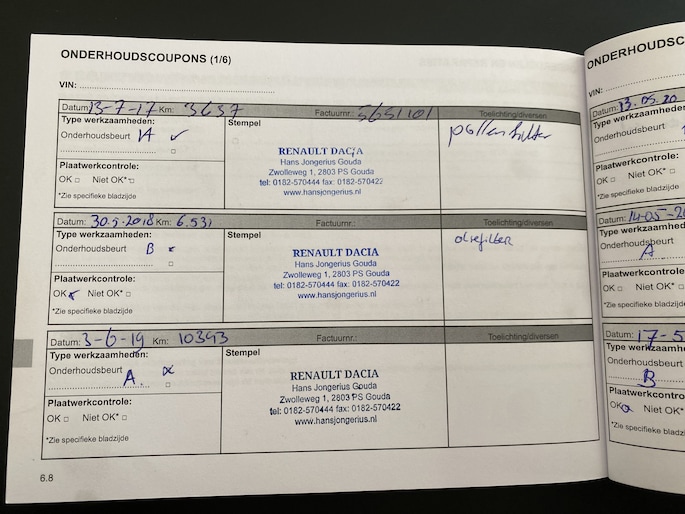 ONDERHOUDSCOUPONS (1/6)
VIN:
Datum: 13-7-17 Km: 3637 Factuurnr.: 5651101 Toelichting/diversen
Type werkzaamheden: Stempel
Onderhoudsbeurt 1A pollenfilter
Plaatwerkcontrole:
OK Niet OK*
*Zie specifieke bladzijde
RENAULT DACIA
Hans Jongerius Gouda
Zwolleweg 1, 2803 PS Gouda
tel: 0182-570444 fax: 0182-570422
www.hansjongerius.nl
Datum: 30-5-2018 Km: 6.531 Factuurnr.: Toelichting/diversen
Type werkzaamheden: Stempel
Onderhoudsbeurt B oliefilter
Plaatwerkcontrole:
OK Niet OK*
*Zie specifieke bladzijde
RENAULT DACIA
Hans Jongerius Gouda
Zwolleweg 1, 2803 PS Gouda
tel: 0182-570444 fax: 0182-570422
www.hansjongerius.nl
Datum: 3-6-19 Km: 10393 Factuurnr.: Toelichting/diversen
Type werkzaamheden: Stempel
Onderhoudsbeurt
A.
Plaatwerkcontrole:
OK Niet OK*
*Zie specifieke bladzijde
RENAULT DACIA
Hans Jongerius Gouda
Zwolleweg 1, 2803 PS Gouda
tel: 0182-570444 fax: 0182-570422
www.hansjongerius.nl
6.8
ONDERHOUDSC
VIN:
Datum: 13.05.20
Type werkzaamheden:
Onderhoudsbeurt
Plaatwerkcontrole:
OK Niet OK*
*Zie specifieke bladzijde
Datum: 14-05-2
Type werkzaamheden:
Onderhoudsbeurt
A
Plaatwerkcontrole:
OK Niet OK*
*Zie specifieke bladzijde
Datum: 17-5
Type werkzaamheden:
Onderhoudsbeurt
B
Plaatwerkcontrole:
OK Niet OK*
*Zie specifieke bladzijde